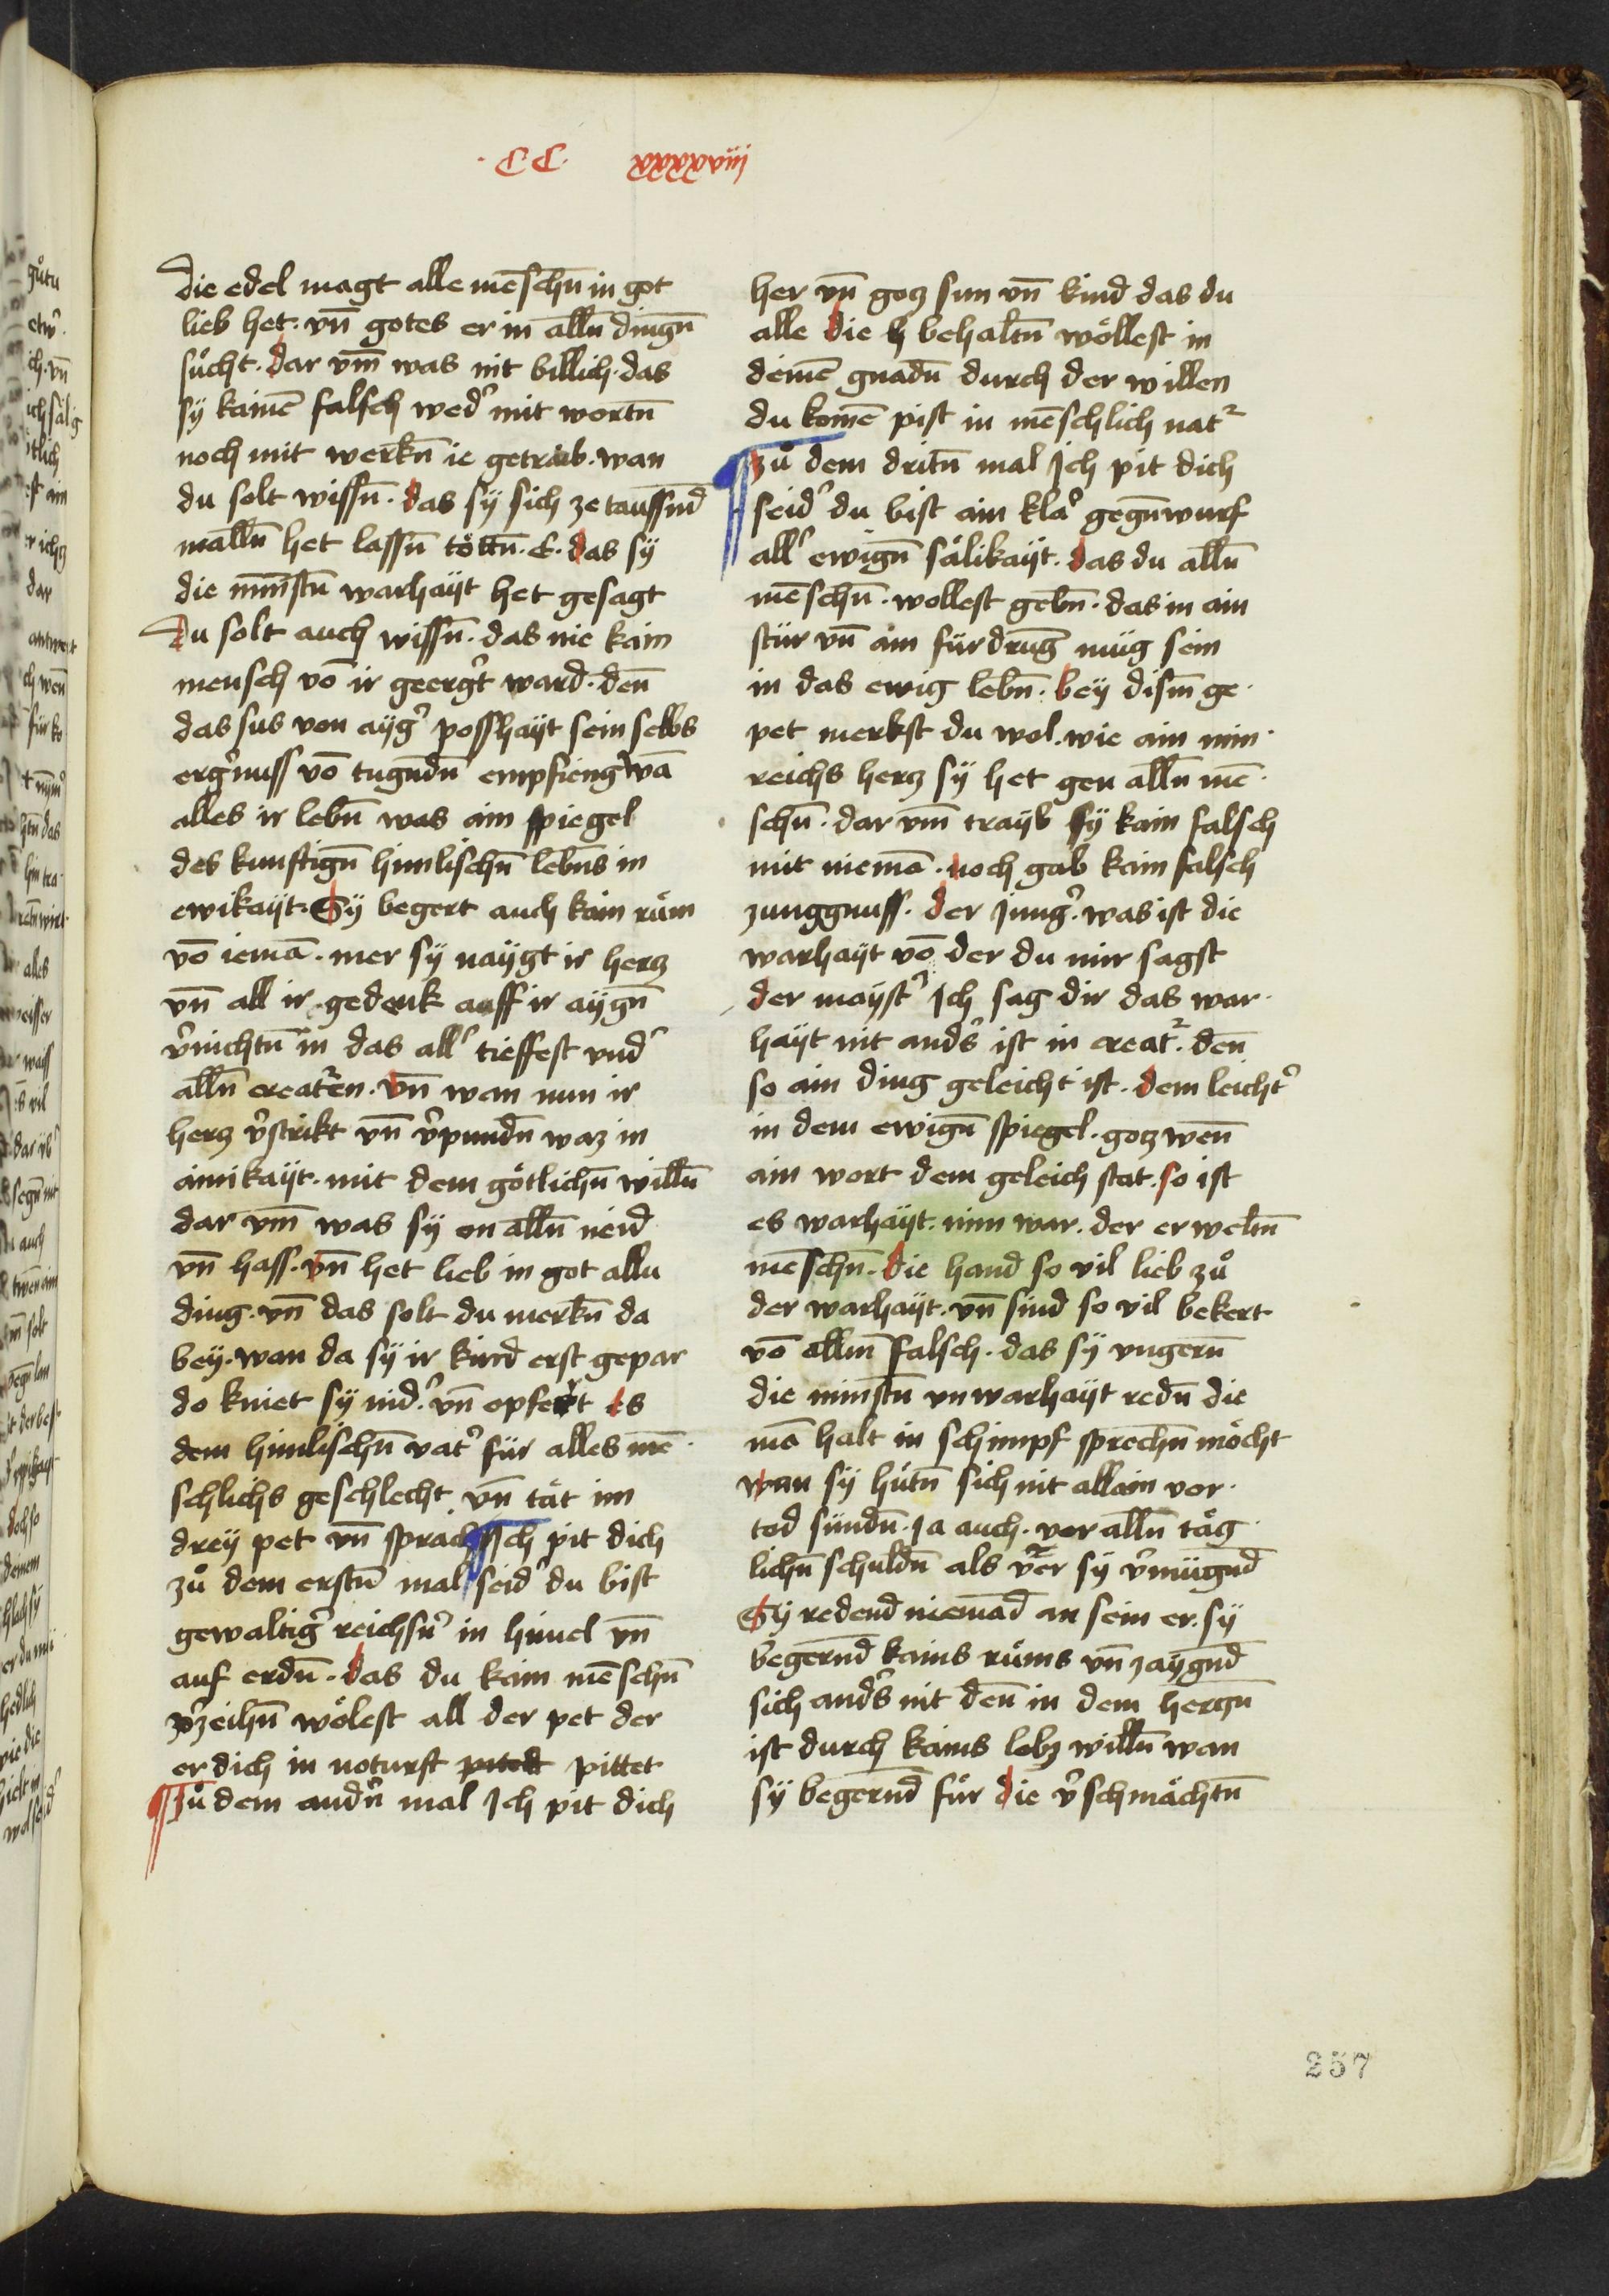 ·CC· xxxxxviij
die edel magt alle mēschn̄ in got
lieb het· vn̄ gotes er in alln̄ dingn̄
sůcht· dar vm̄ was nit billich· das
sÿ kainē falsch wed᾽ mit wortn̄
noch mit werkn̄ ie getraib· wan
du solt wissn̄· das sÿ sich ze taussnd̄
malln̄ het lassn̄ töttn̄· E· das sÿ
die minstn̄ warhaÿt het gesagt
Du solt auch wissn̄· das nie kain
mensch vō ir geerg᾽t ward· den̄
das sus von aÿg᾽ posshaÿt sein selbs
erg᾽nuss vō tugndn̄ empfieng wā
alles ir lebn̄ was ain spiegel
des kunftign̄ himlischn̄ lebn̄s in
ewikaÿt· Sÿ begert auch kain rům
vō iemā· mer sÿ naÿgt ir hertz
vn̄ all ir gedenk auff ir aÿgn̄
v᾽nichtn̄ in das all᾽ tieffest vnd᾽
alln̄ creat᾽en· vn̄ wan nun ir
hertz v᾽strikt vn̄ v᾽pundn̄ waz in
ainikaÿt· mit dem götlichn̄ willn̄
dar vm̄ was sÿ on alln̄ neid
vn̄ hass· vn̄ het lieb in got allu
ding· vn̄ das solt du merkn̄ da
beÿ· wan da sÿ ir kind erst gepar
do kniet sÿ nid᾽· vn̄ opfert es
dem himlischn̄ vat᾽ für alles mē·
schlichs geschlecht vn̄ tät im
dreÿ pet vn̄ sprach ¶ Ich pit dich
zů dem erstn̄ mal seid᾽ du bist
gewaltig᾽ reichsn᾽ in himel vn̄
auf erdn̄· das du kain mēschn̄
v᾽zeihn̄ wölest all der pet der
er dich in noturft pitet pittet
¶ Zů dem andn᾽ mal Ich pit dich
her vn̄ gotz sun vn̄ kind das du
alle die h behaltn̄ wöllest in
deinē gnadn̄ durch der willen
du komē pist in mēschlich nat᾽
¶ Zů dem dritn̄ mal Ich pit dich
seid᾽ du bist ain kla᾽ gegn̄wurf
all᾽ ewign̄ sälikaÿt· das du alln̄
mēschn̄· wollest gebn̄· das in ain
stür vn̄ ain fürdrung müg sein
in das ewig lebn̄· beÿ dism̄ ge·
pet merkst du wol· wie ain min·
reichs hertz sÿ het gen alln̄ mē·
schn̄· dar vm̄ traÿb sÿ kain falsch
mit niemā· noch gab kain falsch
zunggnuss· der Jung᾽· was ist die
warhaÿt vō der du mir sagst
der maÿst᾽ Ich sag dir das war·
haÿt nit and᾽s ist in creat᾽· den̄
so ain ding geleicht ist· dem leicht᾽
in dem ewign̄ spiegel· gotz wen̄
ain wort dem geleich stat· so ist
es warhaÿt· nim war· der erweltn̄
mēschn̄· die hand so vil lieb zů
der warhaÿt· vn̄ sind so vil bekert
vō allm̄ falsch· das sÿ vngern̄
die minstn̄ vnwarhaÿt redn̄ die
mā halt in schimpf sprechn̄ möcht
wan sÿ hütn̄ sich nit allain vor·
tod sündn̄· Ja auch· vor alln̄ täg·
lichn̄ schuldn̄ als v᾽er sÿ v᾽mügnd̄
Sÿ redend niemād an sein er· sÿ
begernd̄ kains růms vn̄ zaÿgnd̄
sich and᾽s nit den̄ in dem hergn̄
ist durch kains lobz willn̄ wan
sÿ begernd̄ für die v᾽schmächtn̄
257